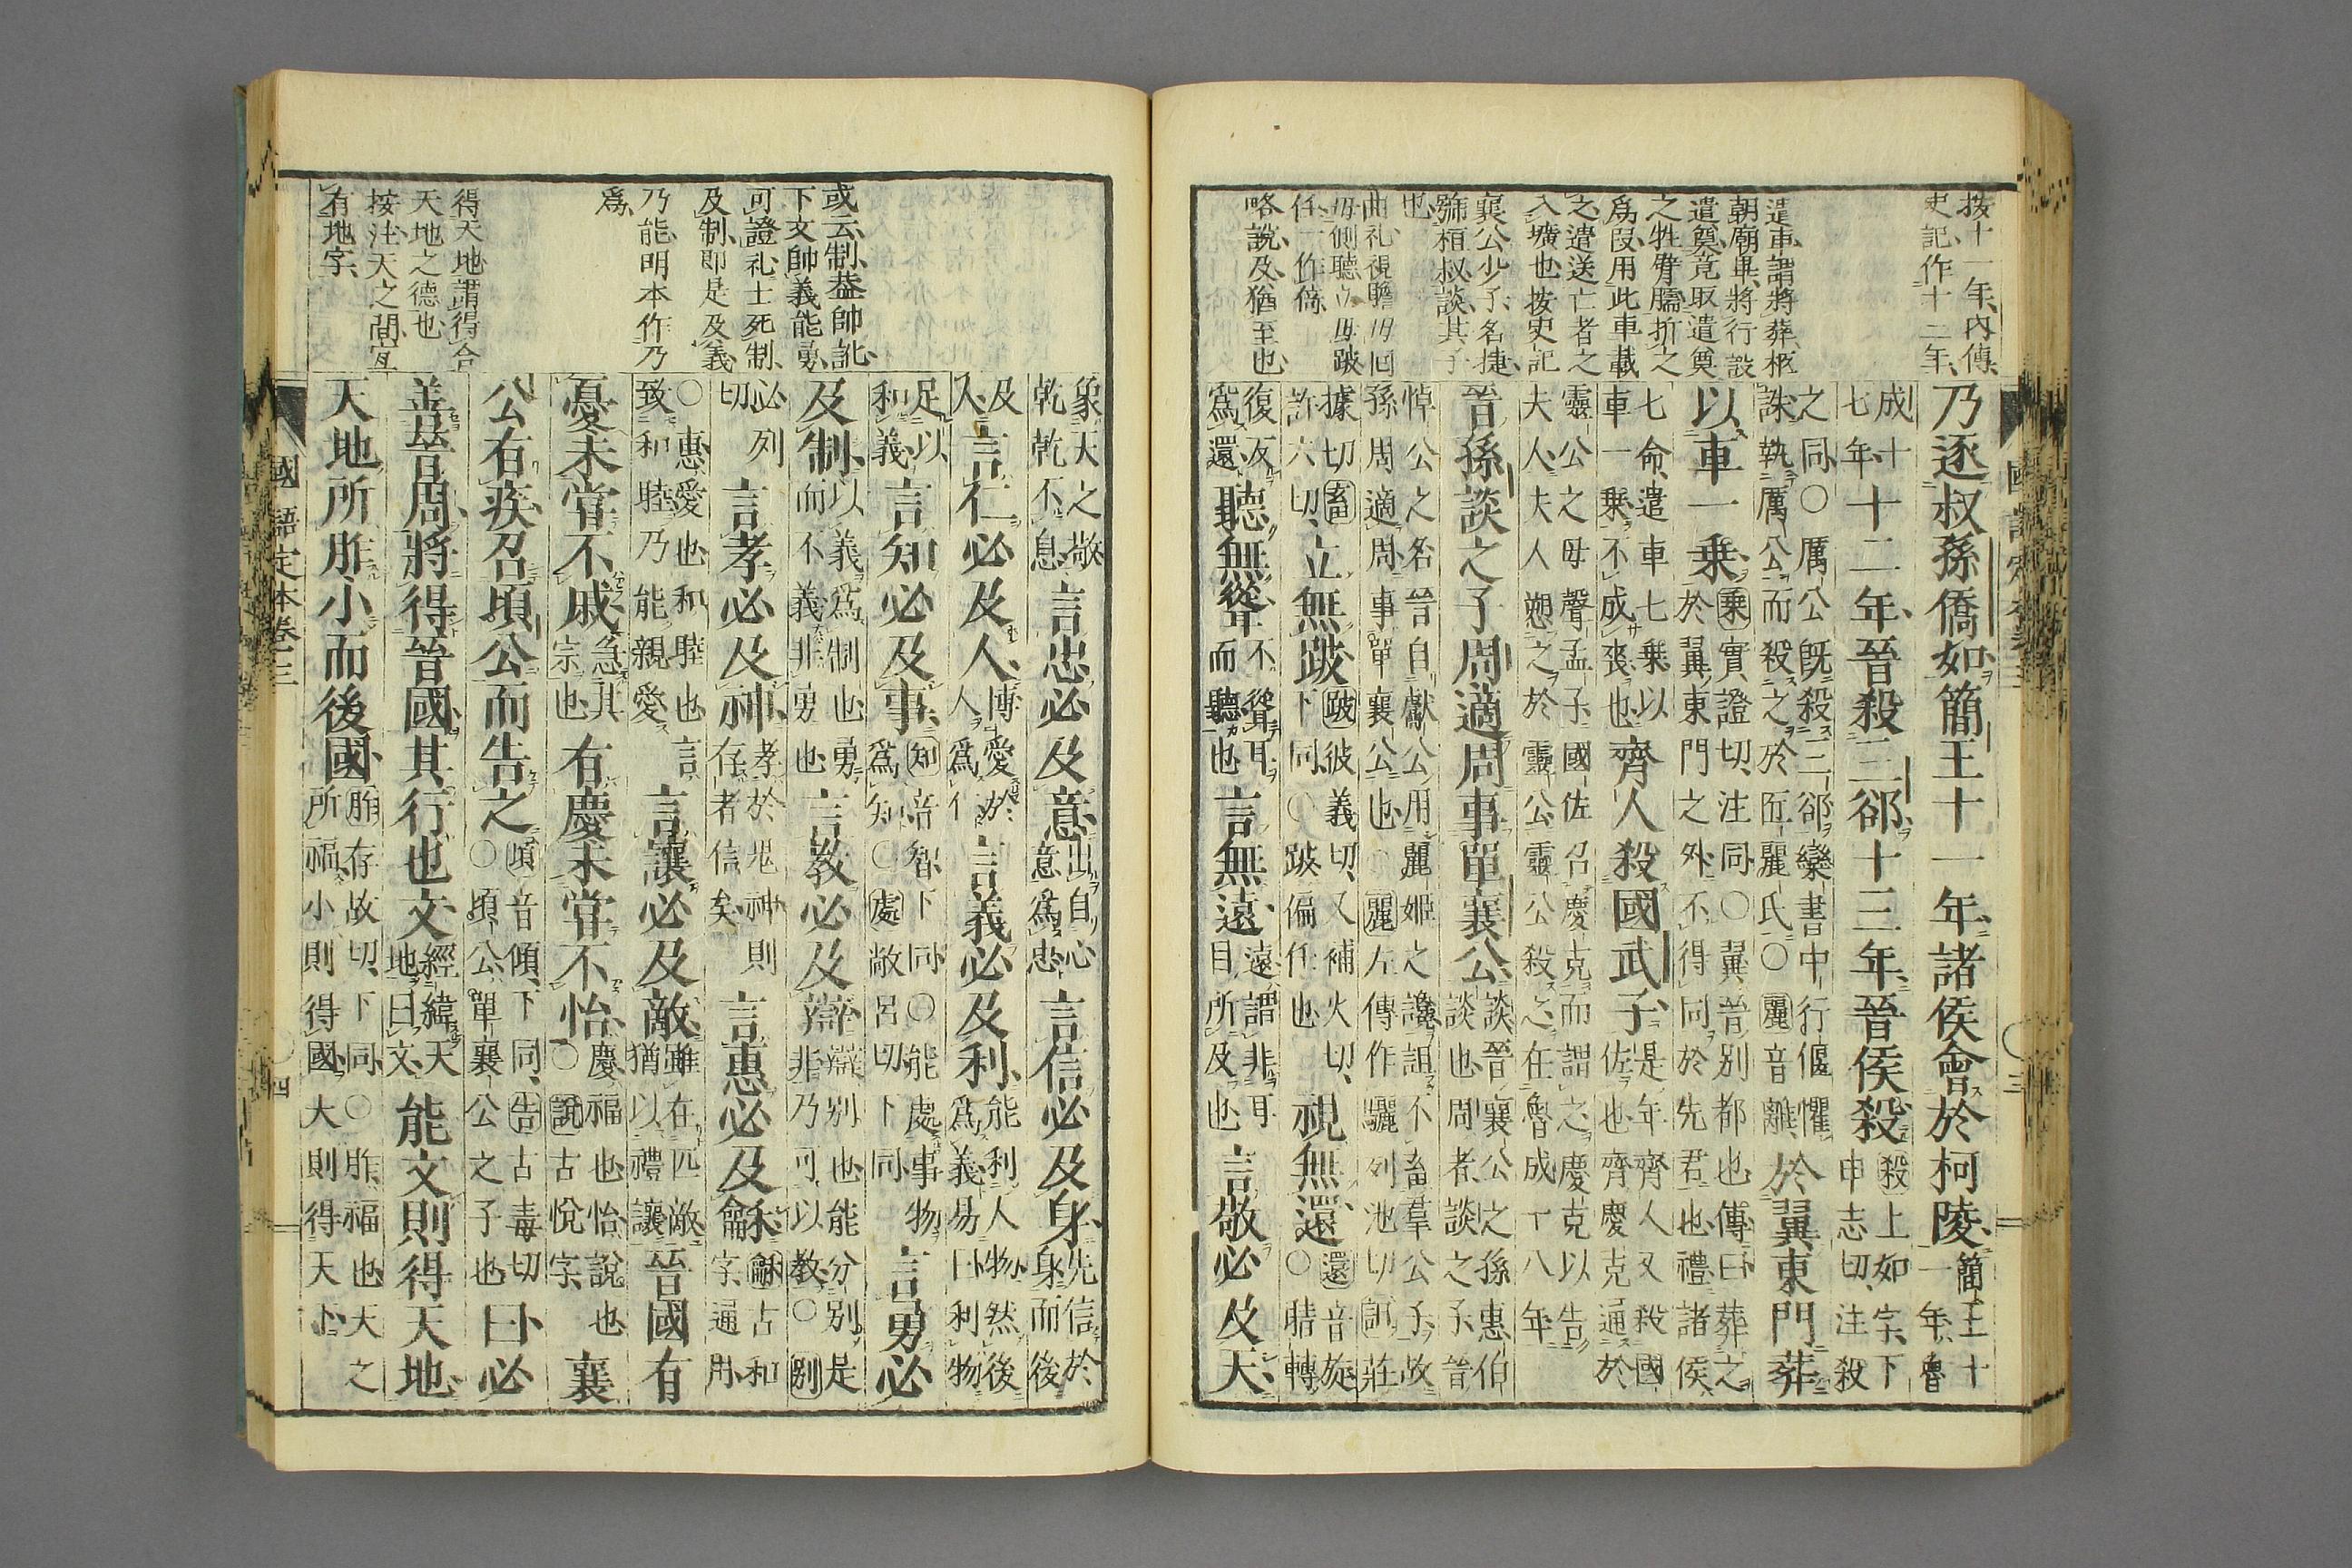 按十一年內傳
史記作十二年
遣車謂將葬柩
朝廟畢將行設
遣奠竟取遣奠
之牲臂臑折之
爲段用此車載
之遣送亡者之
入壙也按史記
襄公少子名捷
號桓叔談其子
也
曲礼視瞻毋回
毋側聽立毋跛
任一作倚
略說及猶至也
乃逐叔孫僑如簡王十一年諸侯會於柯陵簡王十一年魯
成十七年十二年晉殺三郤十三年晉侯殺殺上如字下申志切注殺
之同〇厲公既殺三郤欒書中行偃懼誅執厲公而殺之於匠麗氏〇麗音離於翼東門葬
以車一乘乘實證切注同〇翼晉別都也傳曰葬之於翼東門之外不得同於先君也禮諸侯
七命遣車七乘以車一乘不成喪也齊人殺國武子是年齊人又殺國佐也齊慶克通於
靈公之母聲孟子國佐召慶克而謂之慶克以告夫人夫人愬之於靈公靈公殺之在魯成十八年
晉孫談之子周適周事單襄公談晉襄公之孫惠伯談也周者談之子晉
悼公之名晉自獻公用麗姬之讒詛不畜羣公子故孫周適周事單襄公也〇麗左傳作驪列池切詛莊
據切畜許六切立無跛跛彼義切又補火切下同〇跛偏任也視無還還音旋〇睛轉
復反爲還聽無聳不聳耳而聽也言無遠遠謂非耳目所及也言敬必及天
國語定本卷三
三
或云制葢帥訛
下文帥義能勇
可證礼士死制
及制即是及義
乃能明本作乃
爲
得天地謂得合
天地之德也
按注天之間宜
有地字
象天之敬乾乾不息言忠必及意出自心意爲忠言信必及身先信於身而後
及人言仁必及人博愛於人爲仁言義必及利能利人物然後爲義易曰利物
足以和義言知必及事知音智下同〇能處事物爲知〇處敞呂切下同言勇必
及制以義爲制也勇而不義非勇也言教必及辯辯別也能分別是非乃可以教〇別
必列切言孝必及神孝於鬼神則存者信矣言惠必及龢龢古和字通用
〇惠愛也和睦也言致和睦乃能親愛言讓必及敵雖在匹敵猶以禮讓晉國有
憂未嘗不戚急其宗也有慶未嘗不怡慶福也怡說也〇說古悅字襄
公有疾召頃公而告之頃音傾下同告古毒切〇頃公單襄公之子也曰必
善晉周將得晉國其行也文經緯天地曰文能文則得天地
天地所胙小而後國胙存故切下同〇胙福也天之所福小則得國大則得天下
國語定本卷三
四